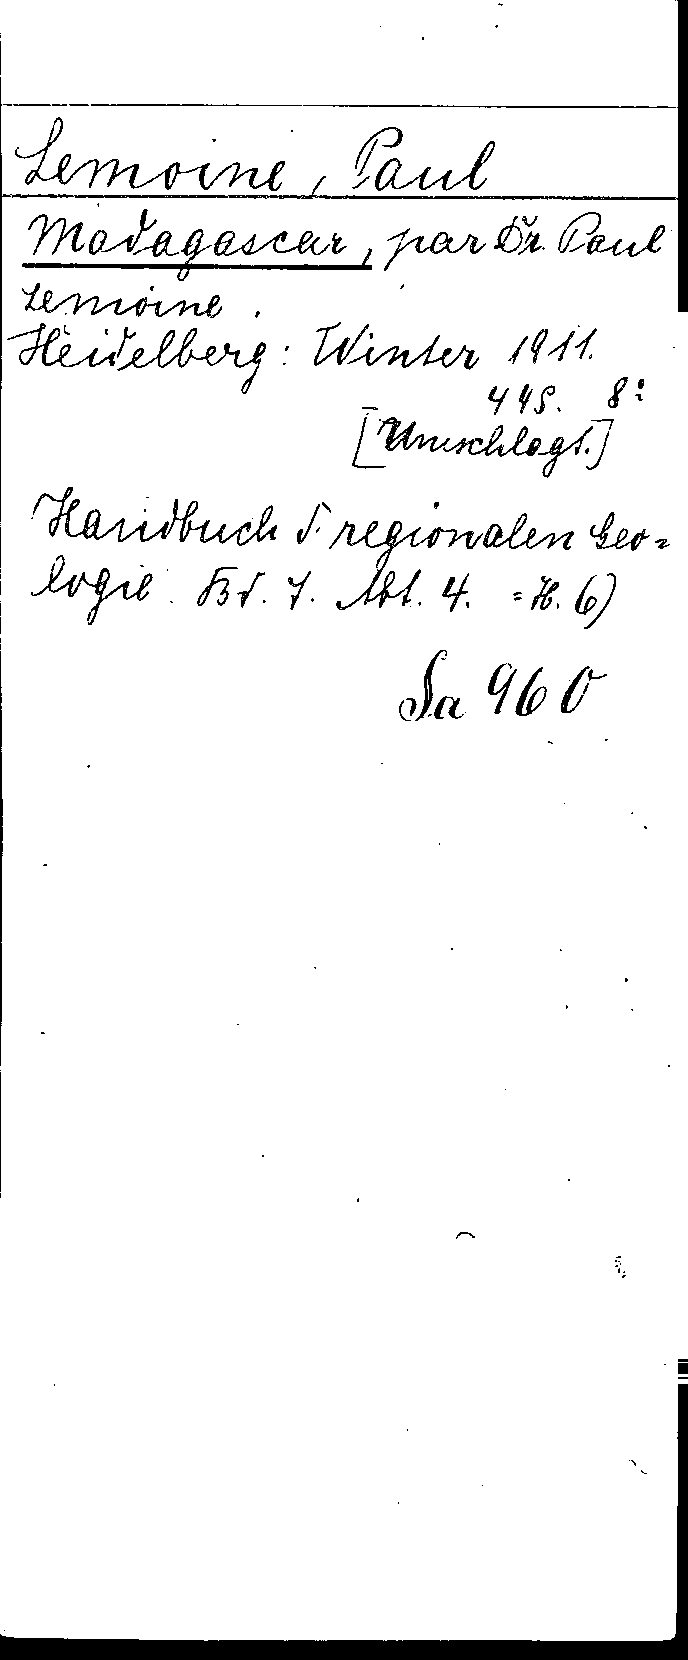 Lemoine, Paul
Madagascar, par Dr. Paul
Lemoine.
Heidelberg: Winter 1911.
44S. 8°
[Umschlagt.]
Handbuch d. regionalen Geo=
logie. Bd. 7. Abt. 4. =H. 6)
Sa 960